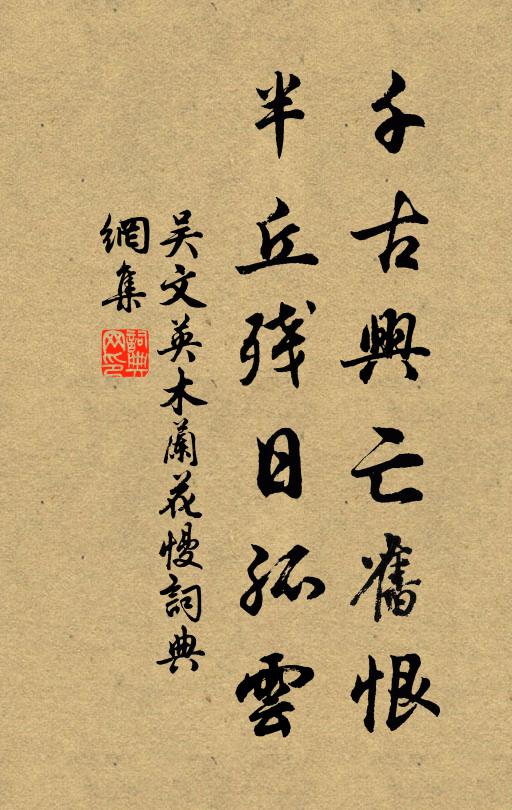 千古興亡舊恨
半丘殘日孤雲
吴文英木蘭花慢詞典
網集
詞典
网印